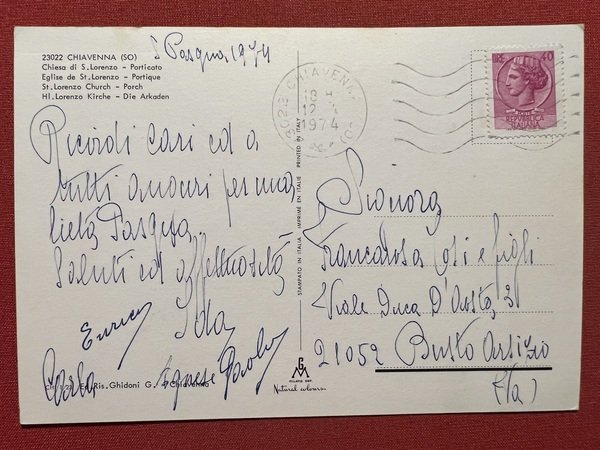 23022 CHIAVENNA (SO)
Chiesa di S. Lorenzo - Porticato
Eglise de St. Lorenzo - Portique
St. Lorenzo Church - Porch
Hl. Lorenzo Kirche - Die Arkaden
S. Pasqua, 1974
Ricordi cari ed a
tutti auguri per una
lieta Pasqua.
Saluti ed affettuosità
Ida
Enrica
Carla
Agnese Paolo
Ed. Ris. Ghidoni G. - Chiavenna
STAMPATO IN ITALIA IMPRIMÉ EN ITALIE PRINTED IN ITALY
23022 CHIAVENNA (SO)
1974
LIRE 40
POSTE
REPUBBLICA
ITALIANA
Signora
Francarosa e figli
Viale Duca D'Aosta, 3
21052 Busto Arsizio
(Va)
Natural colours